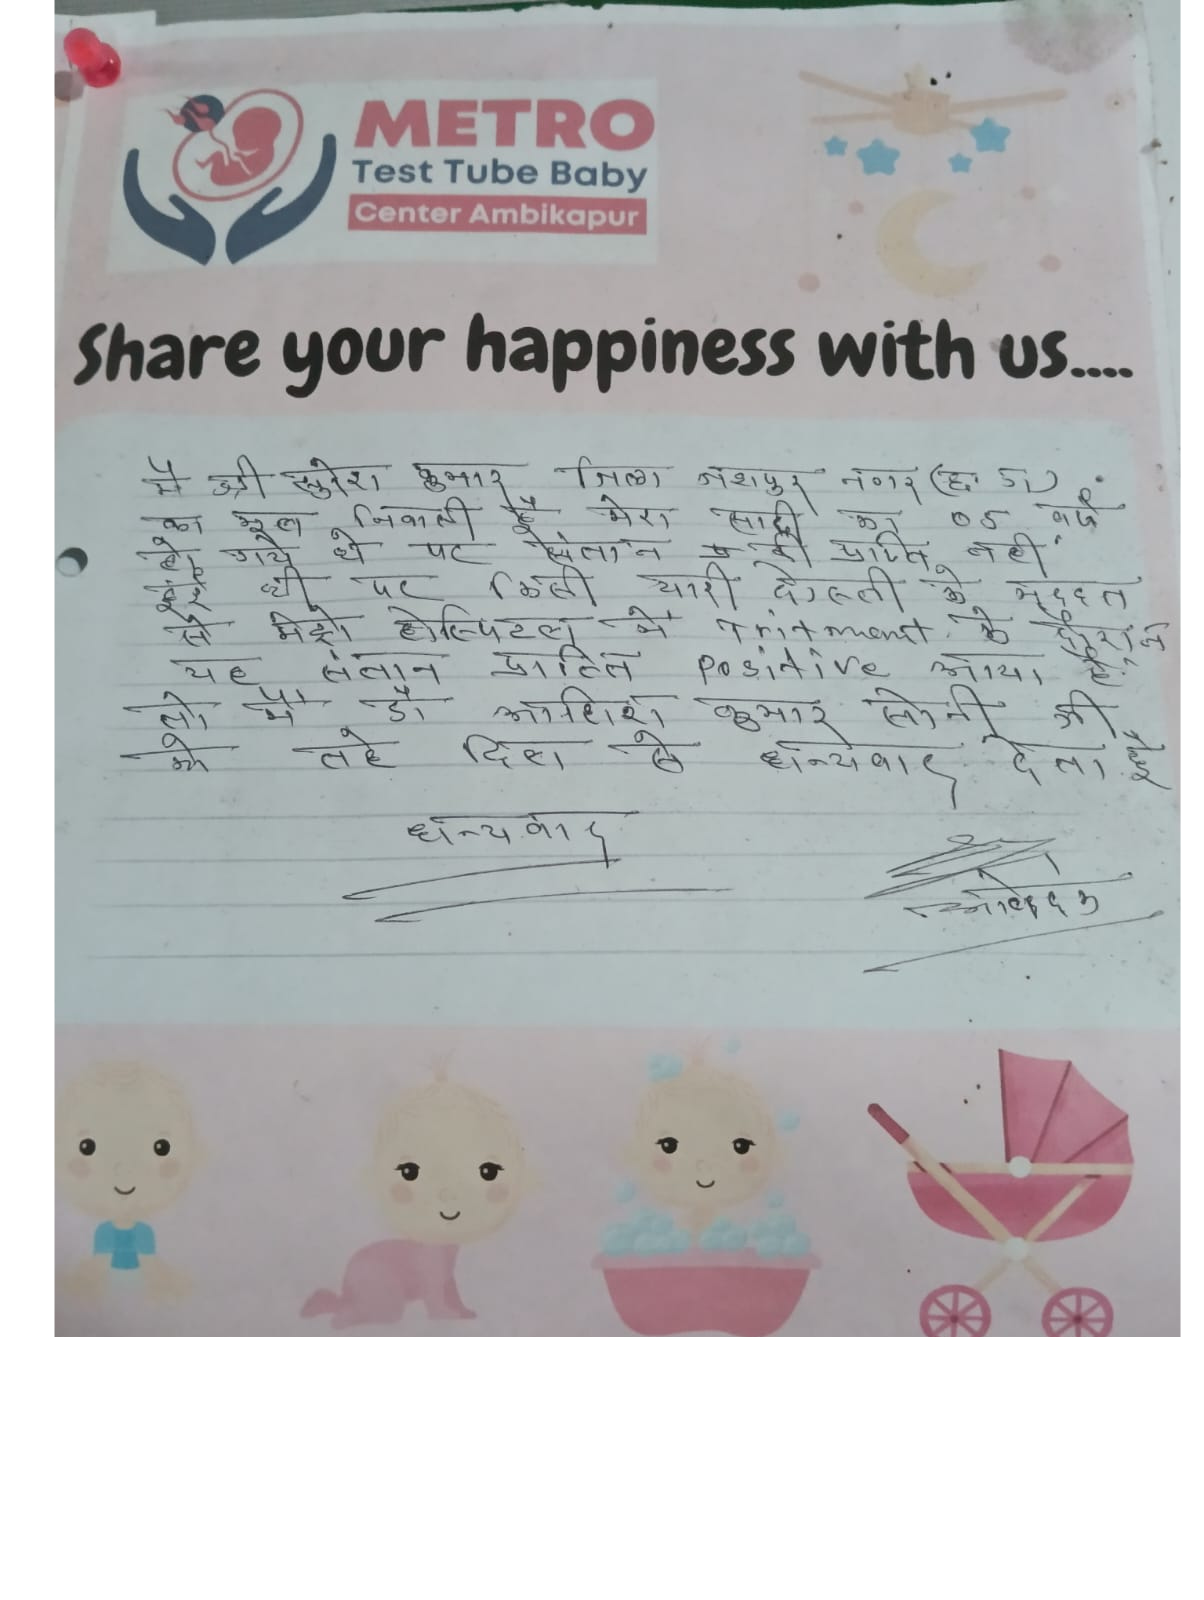 METRO
Test Tube Baby
Center Ambikapur
Share your happiness with us....
मै श्री सुरेश कुमार जिला जशपुर नगर (छ. ग)
का मूल निवासी हूँ मेरा सादी का 05 वर्ष
हो गये थे पर संतान की प्राप्ति नहीं
हुई थी पर किसी यारी दोस्ती के मद्दत
से मेट्रो होस्पिटल में Tritment के दौरान
यह संतान प्राप्ति positive आया है
तो मै डॉ कुमार सोनी जी
को तहे दिल से धन्यवाद देता हूँ
धन्यवाद